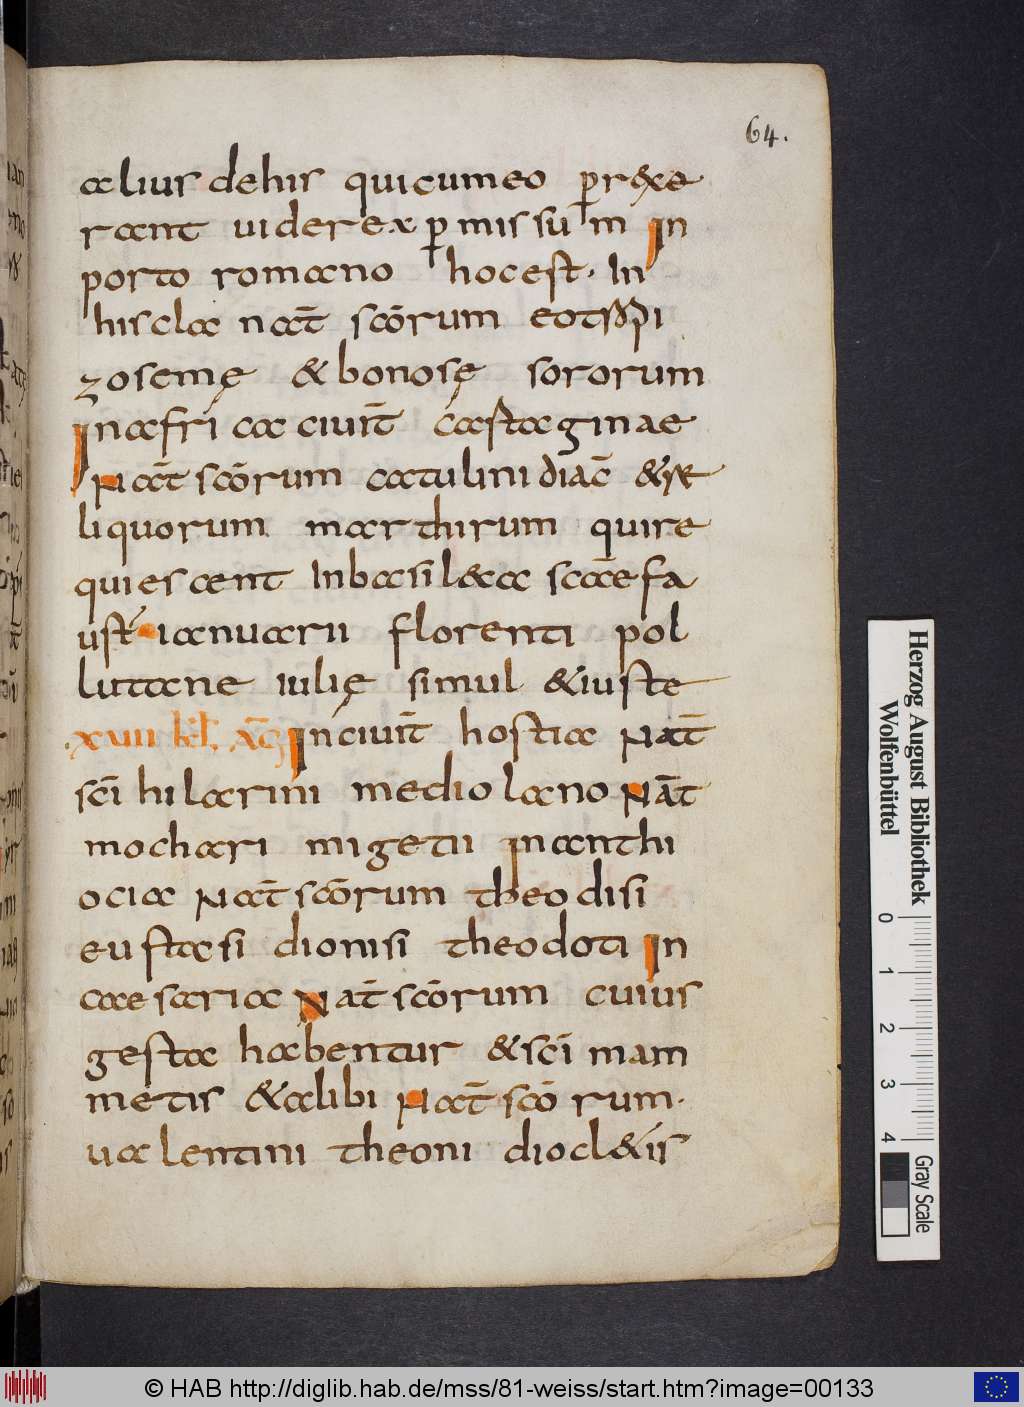 64.
alius dehis quicumeo p̱rexe
rant uiderex p̱missum in
porto romano hocest. In
hiscla nat̄ scōrum eotropi
zosemę &bonosę sororum
Inafrica ciuit̄ castaginae
Nat̄ scōrum catulini diac̄ &re
liquorum marthirum quire
quiescent Inbasil&ca scāefa
ust ianuarii florenti pol
lutane iulię simul &iuste
.xuiii kl. aḡ Inciuit̄ hostia Nat̄
scī hilarini mediolano Nat̄
mochari migetii Inanthi
ocia Nat̄ scōrum theodisi
eustasi dionisi theodoti In
caesaria Nat̄ scōrum cuius
gesta habentur &scī mam
metis &alibi Nat̄ scō rum.
ualentini theoni diocl&is
Herzog August Bibliothek
Wolfenbüttel
0 1 2 3 4
Gray Scale
© HAB http://diglib.hab.de/mss/81-weiss/start.htm?image=00133